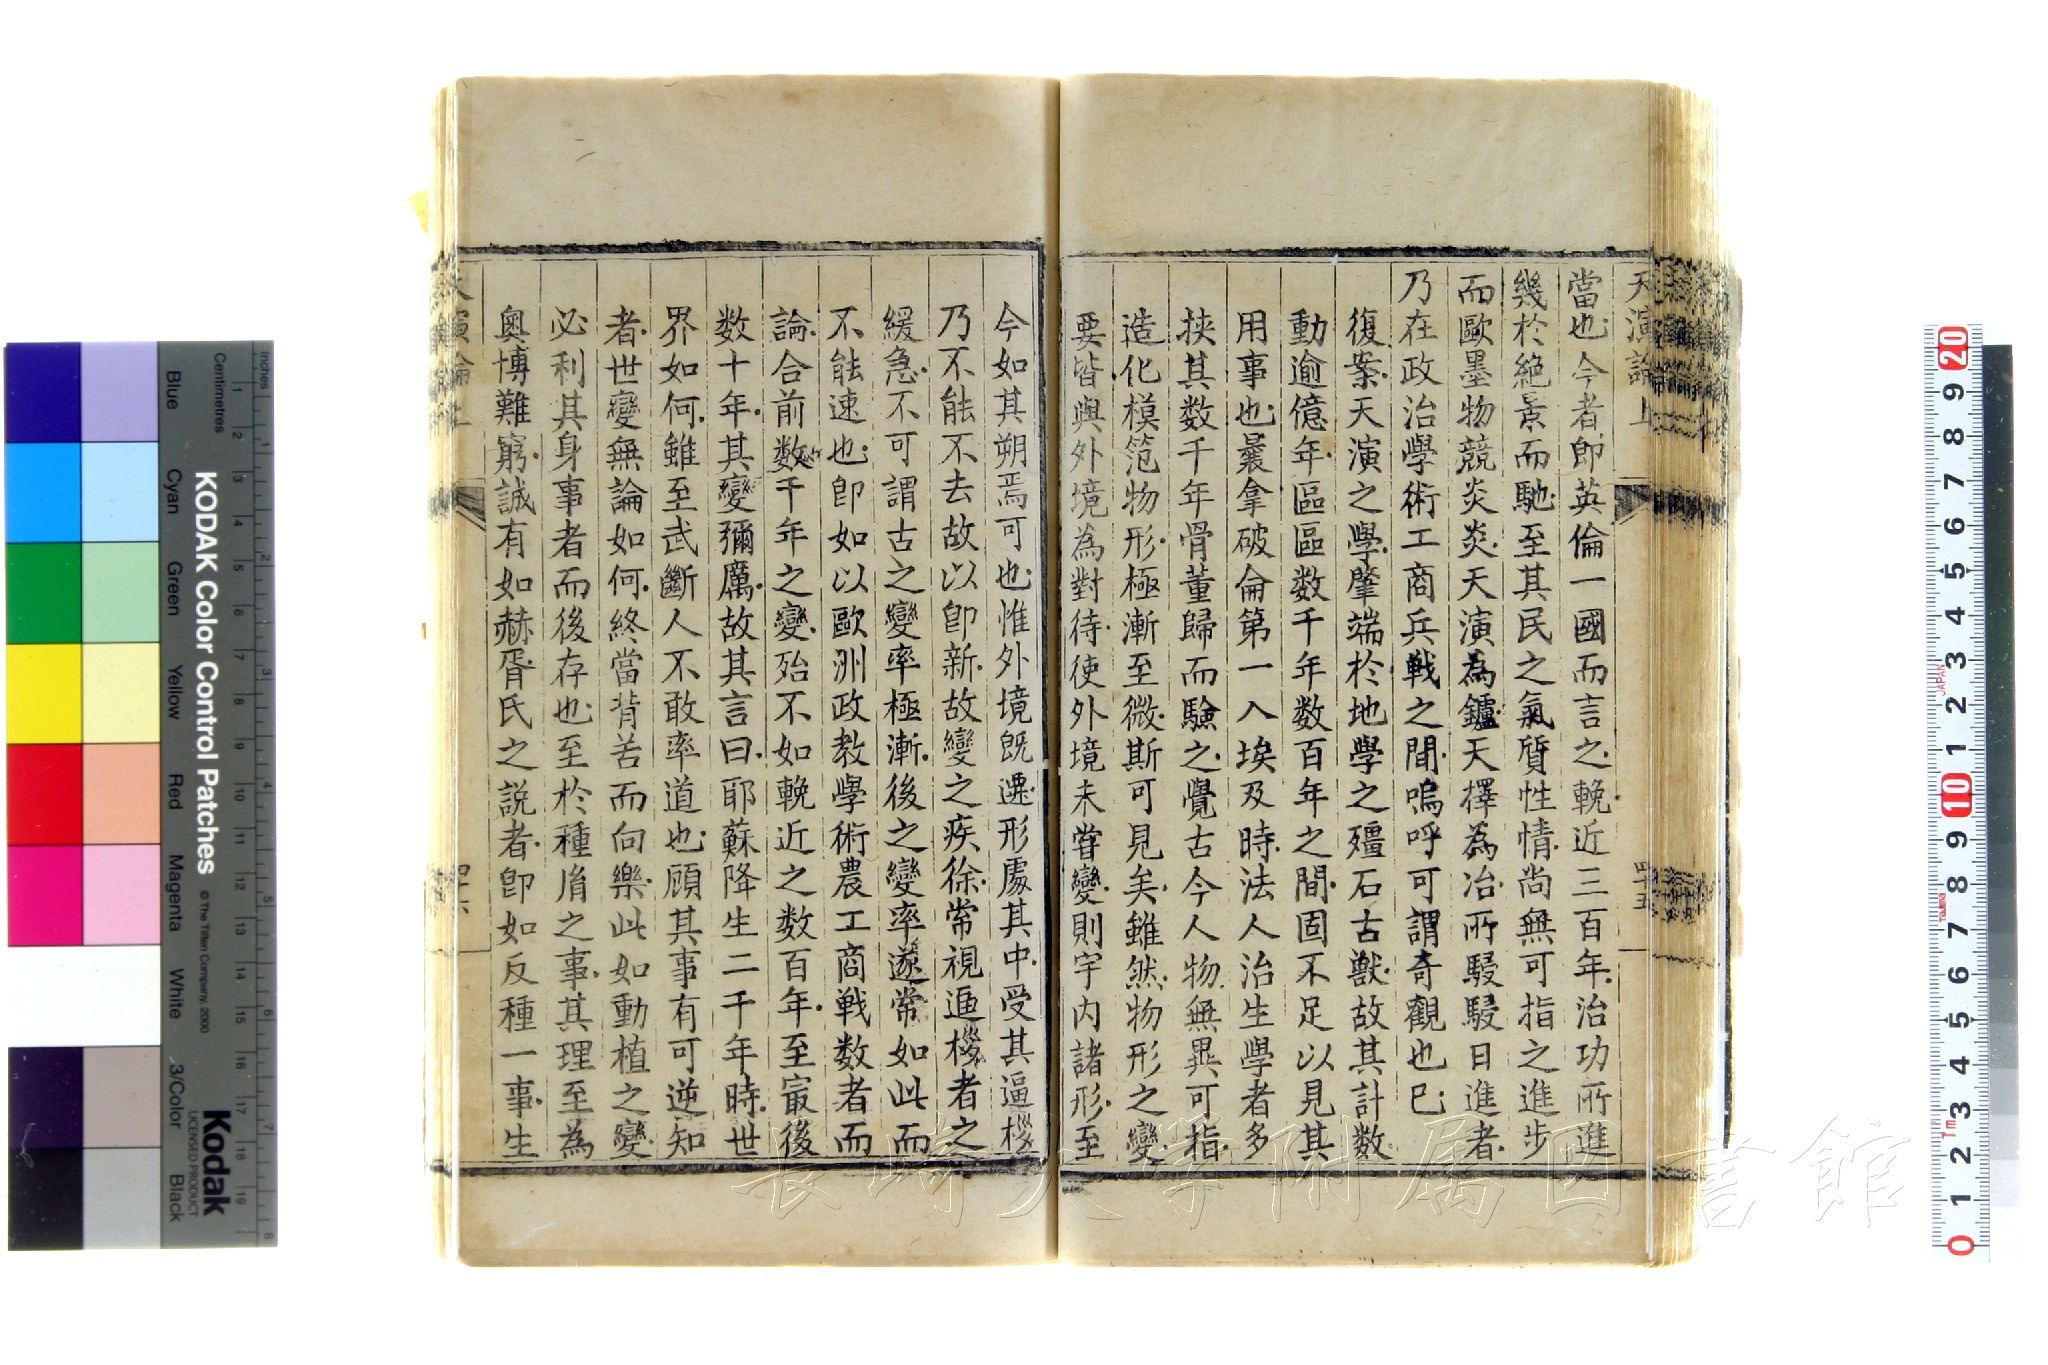 天演論上
四十五
當也今者即英倫一國而言之輓近三百年治功所進
幾於絶景而馳至其民之氣質性情尚無可指之進步
而歐墨物競炎炎天演為鑪天擇為冶所駸駸日進者
乃在政治學術工商兵戰之間嗚呼可謂奇觀也已
復案天演之學肇端於地學之殭石古獸故其計數
動逾億年區區数千年数百年之間固不足以見其
用事也曩拿破侖第一入埃及時法人治生學者多
挾其数千年骨董歸而驗之覺古今人物無異可指
造化模范物形極漸至微斯可見矣雖然物形之變
要皆與外境為對待使外境未嘗變則宇内諸形至
今如其朔焉可也惟外境既遷形處其中受其逼桵
乃不能不去故以即新故變之疾徐常視逼桵者之
緩急不可謂古之變率極漸後之變率遂常如此而
不能速也即如以歐洲政教學術農工商戰数者而
論合前数千年之變殆不如輓近之数百年至㝡後
数十年其變彌厲故其言曰耶蘇降生二千年時世
界如何雖至武斷人不敢率道也顧其事有可逆知
者世變無論如何終當背苦而向樂此如動植之變
必利其身事者而後存也至於種胤之事其理至為
奧博難窮誠有如赫胥氏之説者即如反種一事生
KODAK Color Control Patches
© The Tiffen Company, 2000
Kodak
LICENSED PRODUCT
Inches
Centimetres
Blue
Cyan
Green
Yellow
Red
Magenta
White
3/Color
Black
長崎大学附属図書館
JAPAN
Tajima